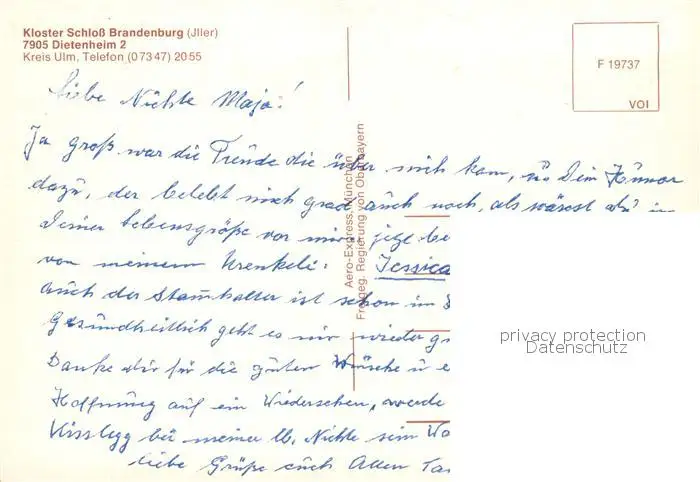 Kloster Schloß Brandenburg (Jller)
7905 Dietenheim 2
Kreis Ulm, Telefon (0 73 47) 20 55
F 19737
VOI
Liebe Nichte Maja!
Ja groß war die Freude die über mich kam, u Dein Humor
dazu, der belebt mich grad auch noch, als wärest du in
Deiner Lebensgröße vor mir. jetz be
von meinem Urenkeli: Jessica
auch der Stammhalter ist schon im
Gesundheitlich geht es mir wieder g
Danke dir für die guten Wünsche u e
Hoffnung auf ein Wiedersehen, werde
Kisslegg bei meiner lb. Nichte sein Wo
liebe Grüße euch Allen Tan
Aero-Express, München
Freigeg. Regierung von Oberbayern
privacy protection
Datenschutz